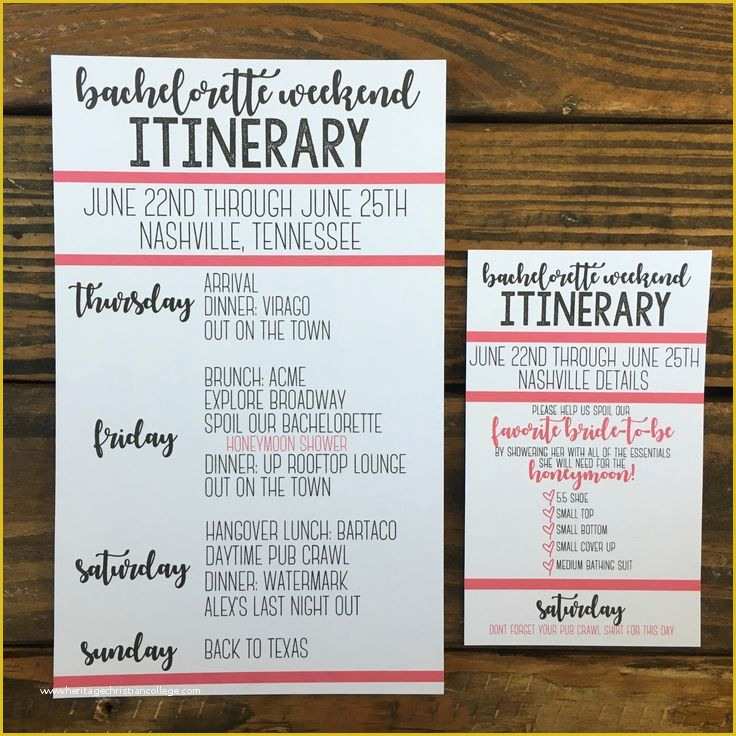 bachelorette weekend
ITINERARY
JUNE 22ND THROUGH JUNE 25TH
NASHVILLE, TENNESSEE
thursday
ARRIVAL
DINNER: VIRAGO
OUT ON THE TOWN
friday
BRUNCH: ACME
EXPLORE BROADWAY
SPOIL OUR BACHELORETTE
HONEYMOON SHOWER
DINNER: UP ROOFTOP LOUNGE
OUT ON THE TOWN
saturday
HANGOVER LUNCH: BARTACO
DAYTIME PUB CRAWL
DINNER: WATERMARK
ALEX'S LAST NIGHT OUT
sunday
BACK TO TEXAS
bachelorette weekend
ITINERARY
JUNE 22ND THROUGH JUNE 25TH
NASHVILLE DETAILS
PLEASE HELP US SPOIL OUR
favorite bride-to-be
BY SHOWERING HER WITH ALL OF THE ESSENTIALS
SHE WILL NEED FOR THE
honeymoon!
5.5 SHOE
SMALL TOP
SMALL BOTTOM
SMALL COVER UP
MEDIUM BATHING SUIT
saturday
DON'T FORGET YOUR PUB CRAWL SHIRT FOR THIS DAY
www.heritagechristiancollege.com